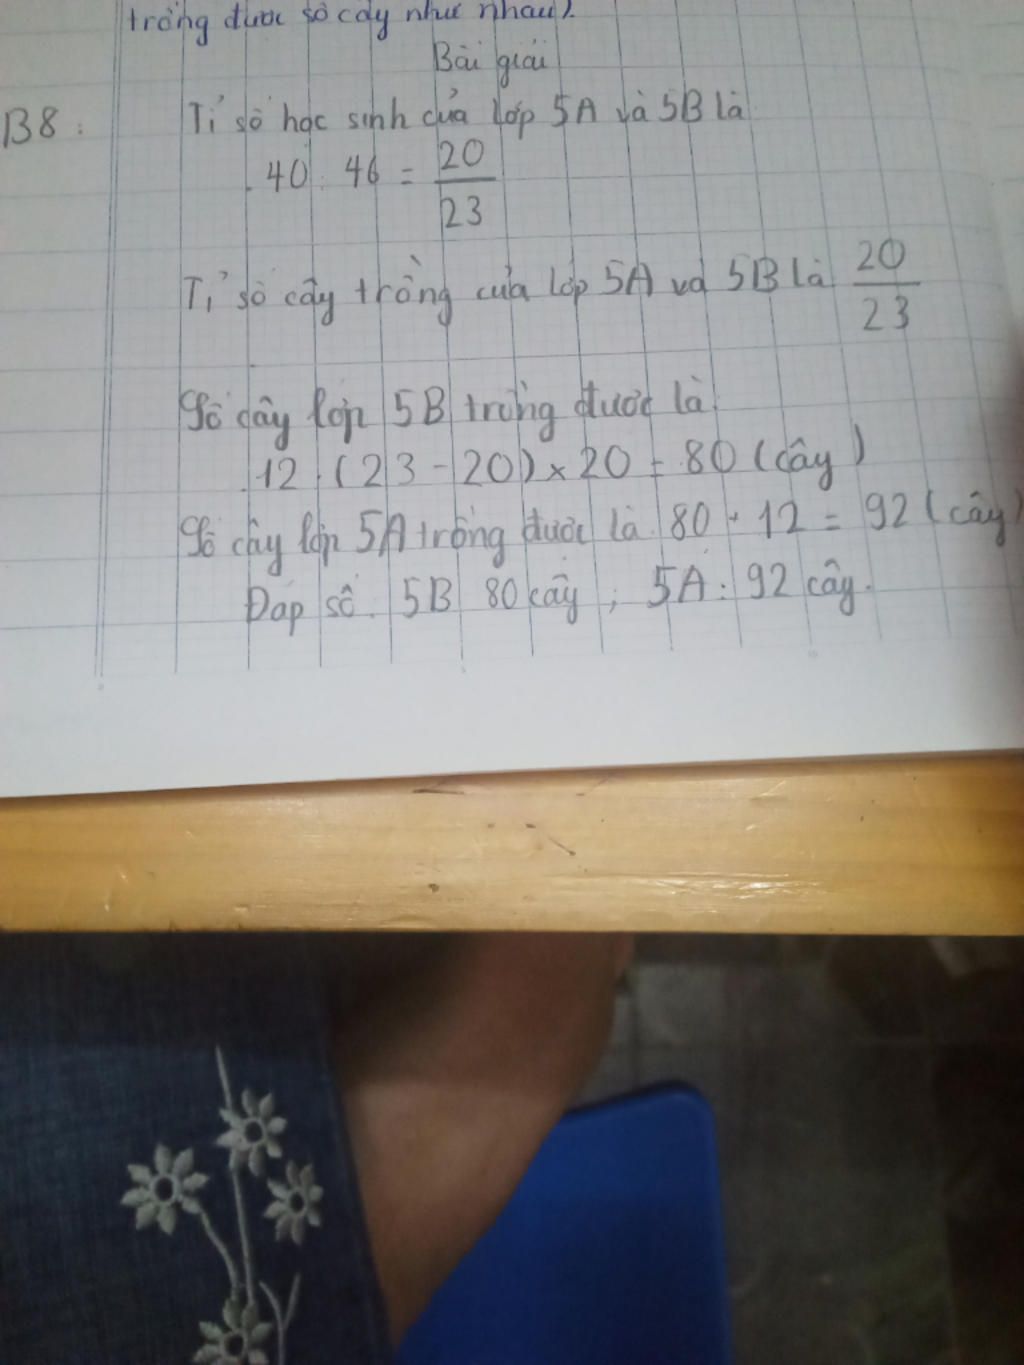 trồng được số cây như nhau).
Bài giải
B8: Tỉ số học sinh của lớp 5A và 5B là
40 : 46 = 20/23
Tỉ số cây trồng của lớp 5A và 5B là 20/23
Số cây lớp 5B trồng được là:
12 : (23 - 20) x 20 = 80 (cây)
Số cây lớp 5A trồng được là: 80 + 12 = 92 (cây)
Đáp số: 5B 80 cây ; 5A : 92 cây.